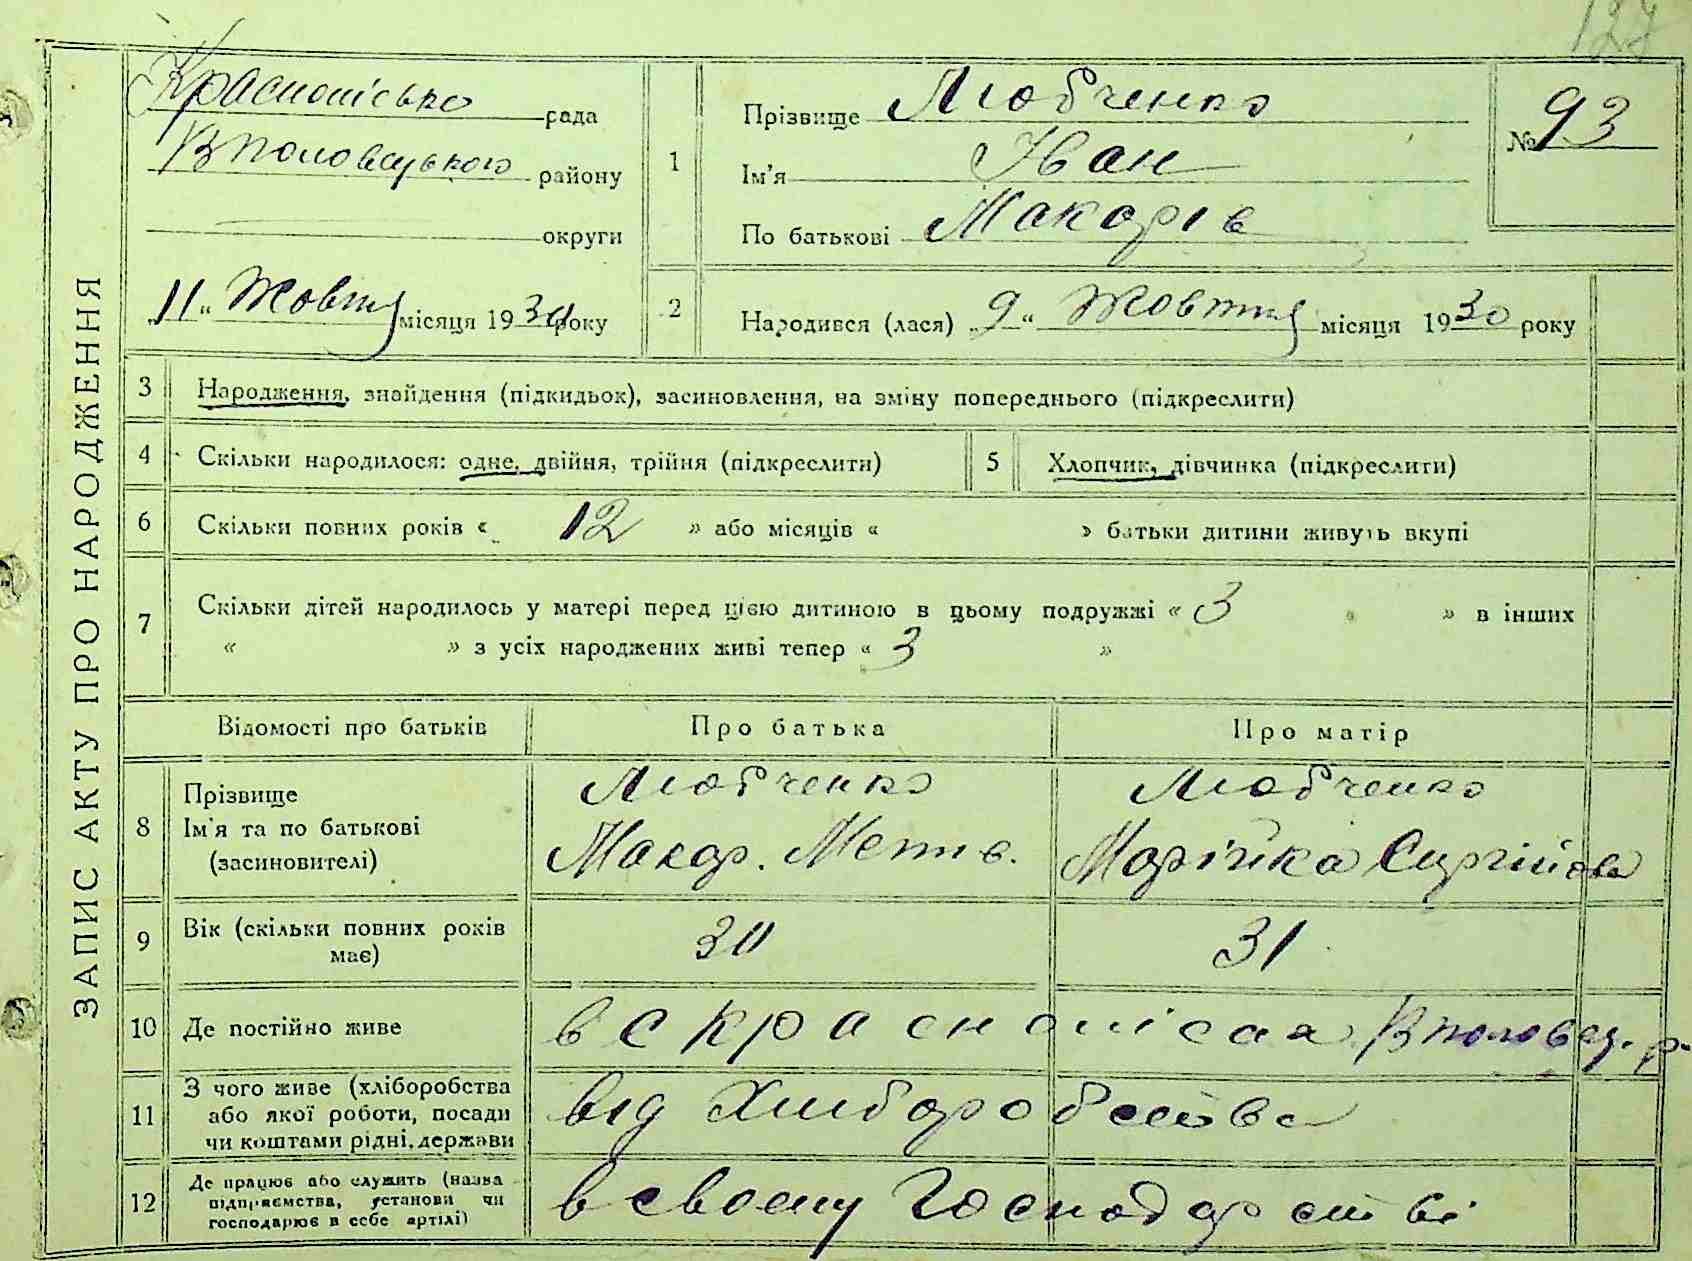 127
ЗАПИС АКТУ ПРО НАРОДЖЕННЯ
Краснопісько рада
Вполовецького району
округи
„11“ Жовтня місяця 1930 року
1
Прізвище Любченко
Ім'я Іван
По батькові Макарів
№ 93
2
Народився (лася) „9“ Жовтня місяця 1930 року
3 Народження, знайдення (підкидьок), засиновлення, на зміну попереднього (підкреслити)
4 Скільки народилося: одне, двійня, трійня (підкреслити)
5 Хлопчик, дівчинка (підкреслити)
6 Скільки повних років « 12 » або місяців « » батьки дитини живуть вкупі
7 Скільки дітей народилось у матері перед цією дитиною в цьому подружжі « 3 » в інших
« » з усіх народжених живі тепер « 3 »
Відомості про батьків Про батька Про матір
8 Прізвище
Ім'я та по батькові
(засиновителі)
Любченко
Макар.
Любченко
Марійка Сиргійова
9 Вік (скільки повних років
має)
30 31
10 Де постійно живе
в с Вполовец. р.
11 З чого живе (хліборобства
або якої роботи, посади
чи коштами рідні, держави
від Хлиборобства
12 Де працює або служить (назва
підприємства, установи чи
господарює в себе артілі)
в своему Господарстві